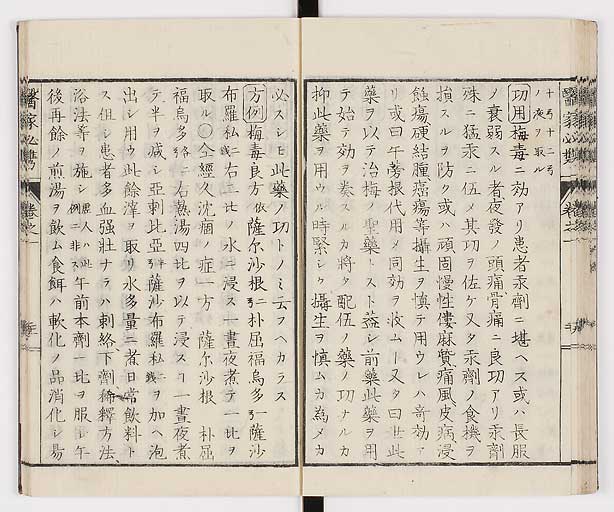 十弓十二弓
ノ液ヲ取ル
功用梅毒ニ効アリ患者汞劑ニ堪ヘス或ハ長服
ノ衰弱スル者夜發ノ頭痛骨痛ニ良功アリ汞劑
殊ニ猛汞ニ伍メ其功ヲ佐ケ又タ汞劑ノ食機ヲ
損スルヲ防ク或ハ頑固慢性僂麻質痛風皮病浸
蝕瘍硬結腫癌瘍等攝生ヲ慎テ用ウレハ奇効ア
リ或曰牛蒡根代用メ同効ヲ收ムー又タ曰世此
藥ヲ以テ治梅ノ聖藥トスト蓋シ前藥此藥ヲ用
テ始テ効ヲ奏スルカ將タ配伍ノ藥ノ功ナルカ
抑此藥ヲ用ウル時緊シク攝生ヲ慎ムカ為メカ
必スシモ此藥ノ功トノミ云フヘカラス
方例梅毒良方依薩尓沙根二弓朴屈福烏多弓一薩沙
布羅私二錢右二比ノ水ニ浸ス一晝夜煮テ一比ヲ
取ル〇仝經久沈痼ノ症一方 薩尓沙根 朴屈
福烏多各弓右熱湯四比ヲ以テ浸スヿ一晝夜煮
テ半ヲ減シ亞剌比亞半弓薩沙布羅私二錢ヲ加ヘ泡
出シ用ウ此餘滓ヲ取リ水多量ニ煮日常飲料ト
ス但シ患者多血強壯ナラハ刺絡下劑稀釋方法
浴法等ヲ施シ虚人ハ此例ニ非ス午前本劑一比ヲ服シ午
後再餘ノ煎湯ヲ飲ム食餌ハ軟化ノ品消化シ易
醫家必携
卷之一